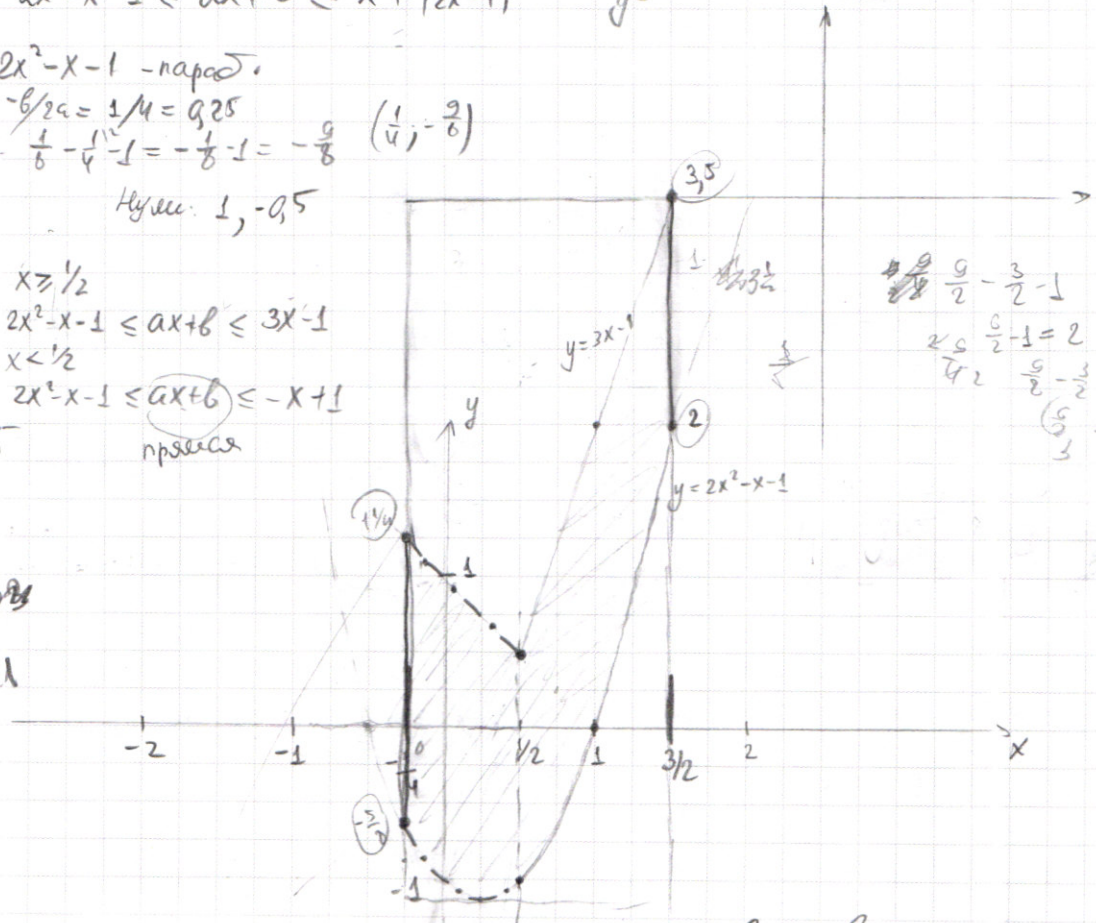 2x²-x-1 - параб.
-b/2a = 1/4 = 0,25
1/8 - 1/4 - 1 = -1/8 - 1 = -9/8 (1/4; -9/8)
Нули: 1, -0,5
x ≥ 1/2
2x²-x-1 ≤ ax+b ≤ 3x-1
x < 1/2
2x²-x-1 ≤ ax+b ≤ -x+1
прямая
y
3,5
1
9/2 - 3/2 - 1
6/2 - 1 = 2
y=3x-1
2
y = 2x²-x-1
y
1 1/4
1
-2
-1
-1/4
0
1/2
1
3/2
2
x
-5/8
-1